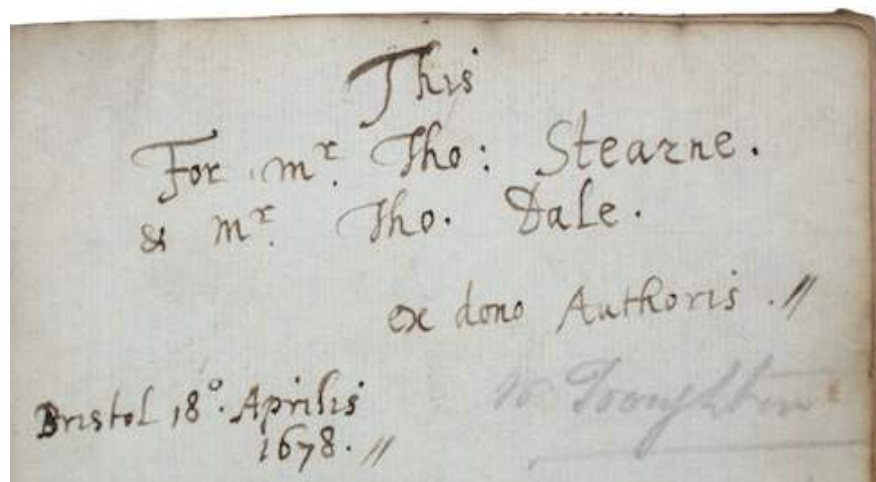 This
For mr. Tho: Stearne.
& mr. Tho. Dale.
ex dono Authoris .//
Bristol 18o. Aprilis
1678. //
W.